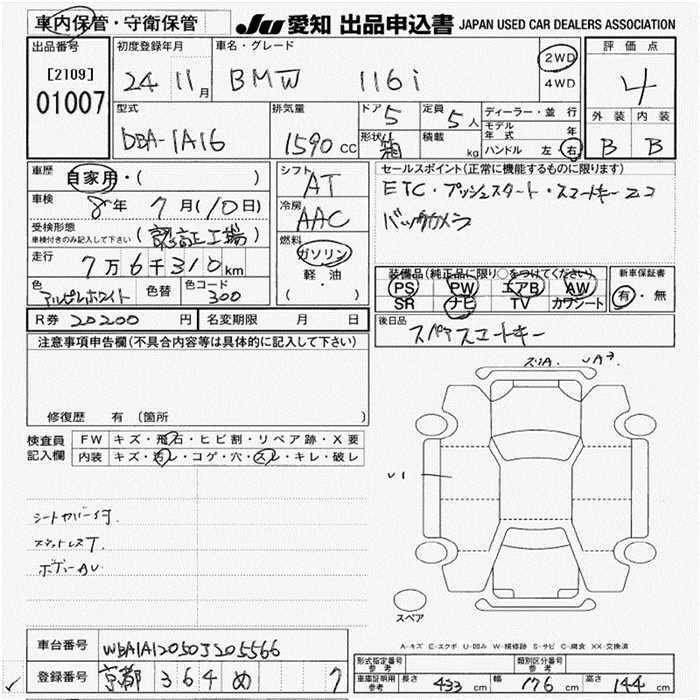 車内保管・守衛保管
JU 愛知 出品申込書 JAPAN USED CAR DEALERS ASSOCIATION
出品番号 初度登録年月 車名・グレード 評価点
[2109] 24 11月 BMW 116i 2WD 4
01007 4WD
型式 排気量 ドア 5 定員 5人 ディーラー・並行 外装 内装
DBA-1A16 1590cc 形状 箱 積載 kg モデル年式 年 B B
ハンドル 左・右
車歴 自家用・( ) シフト AT セールスポイント(正常に機能するものに限ります)
車検 8年 7月(10日) 冷房 AAC ETC・プッシュスタート・スマートキー2コ
受検形態 車検付きのみ記入して下さい (認証工場) 燃料 バックカメラ
走行 7万6千310km ガソリン 装備品(純正品に限り○をつけてください) 新車保証書
色 アルピンホワイト 色替 色コード 300 軽・油 PS PW エアB AW 有・無
( ) SR ナビ TV カワシート
R券 20200円 名変期限 月 日 後日品
スペアスマートキー
注意事項申告欄(不具合内容等は具体的に記入して下さい)
スリA UA3
修復歴 有 (箇所
検査員記入欄 FW キズ・飛石・ヒビ割・リペア跡・X要
内装 キズ・汚レ・コゲ・穴・スレ・キレ・破レ
U1
シートカバー付.
ボディーAU
スペア
A-キズ E-エクボ U-凹み W-補修跡 S-サビ C-腐食 XX-交換済
車台番号 WBA1A12050J205566
登録番号 京都 364 め 7
形式指定番号 参考 類別区分番号 参考
車庫証明用 参考 長さ 433 cm 幅 176 cm 高さ 144 cm